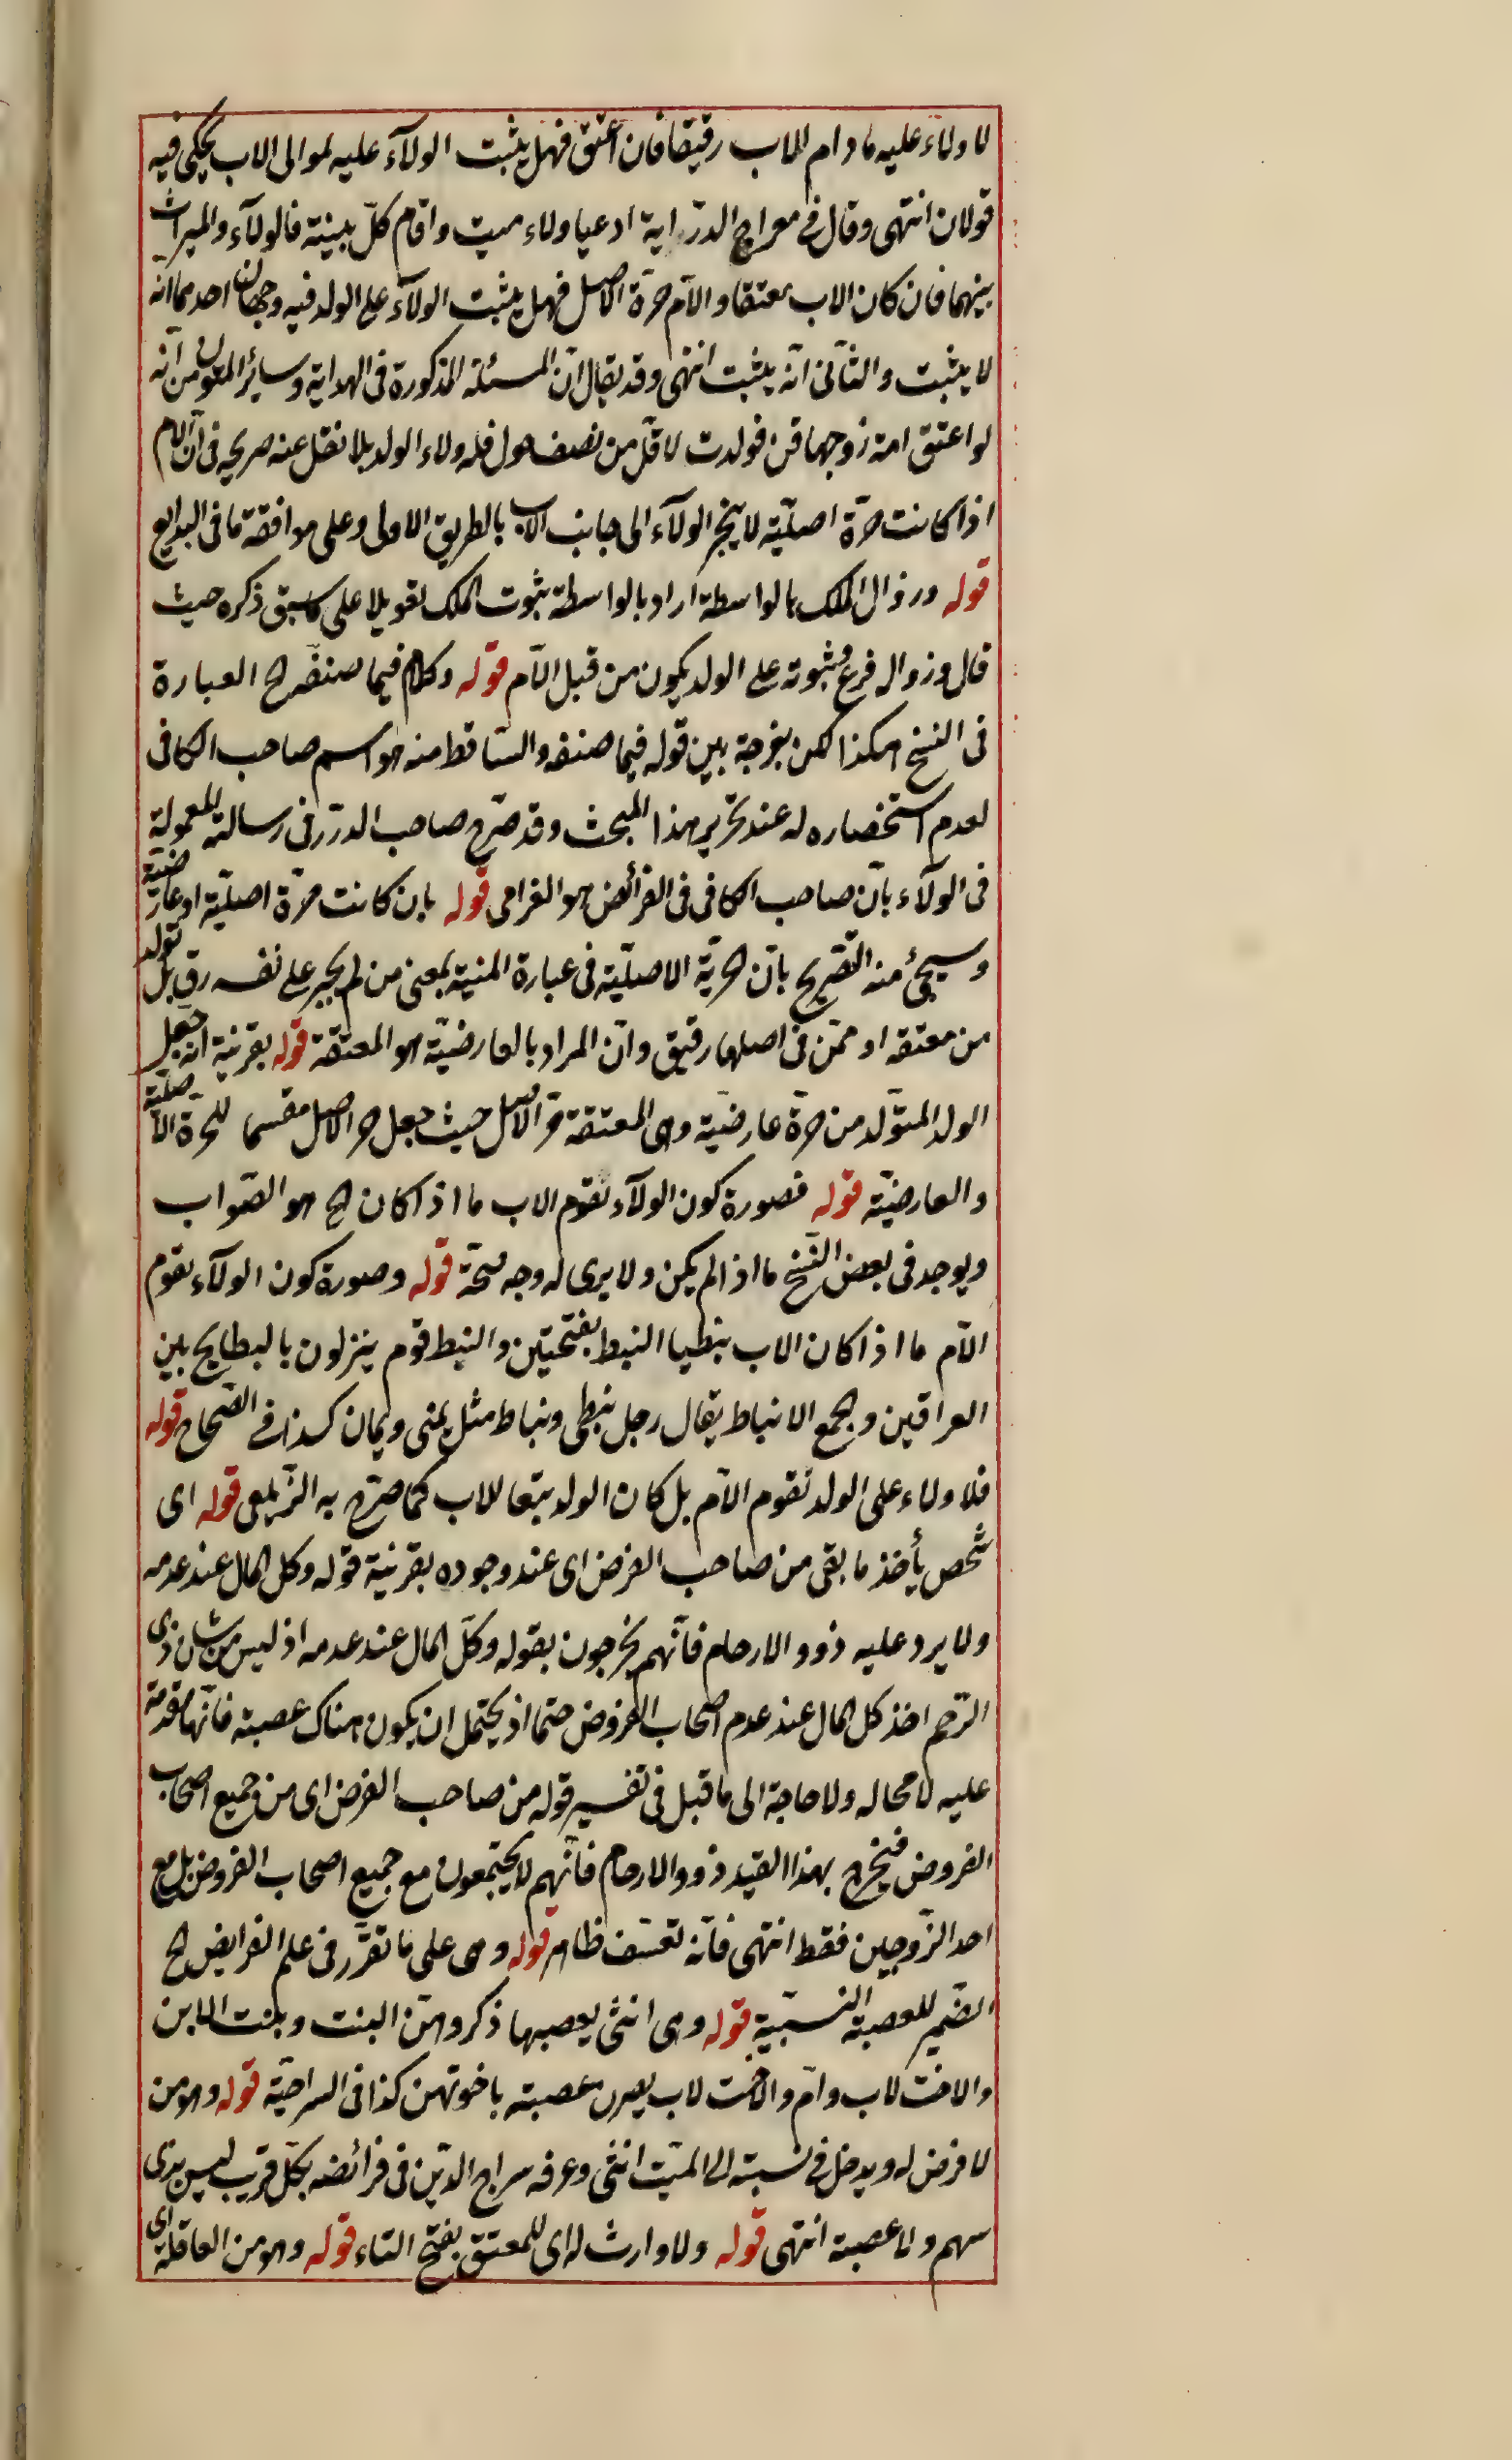 لا ولاء عليه ما دام الاب رقيقا فان اعتق فهل يثبت الولآء عليه لموالى الاب يحكى فيه
قولان انتهى وقال فى معراج الدراية ادعيا ولاء ميت واقام كل بينة فالولآء والميراث
بينهما فان كان الاب معتقا والام حرة الاصل فهل يثبت الولآء على الولد فيه وجهان احدهما انه
لا يثبت والثانى انه يثبت انتهى وقد يقال ان المسئلة المذكورة فى الهداية وسائر المتون من انه
لو اعتق امة زوجها قن فولدت لاقل من نصف حول فله ولاء الولد بلا نقل عنه صريح فى ان الام
اذا كانت حرة اصلية لا ينجر الولآء الى جانب الاب بالطريق الاولى وعلى موافقة ما فى البدايع
قوله وزوال الملك بالواسطة اراد بالواسطة ثبوت الملك تعويلا على ما سبق ذكره حيث
قال وزواله فرع ثبوته على الولد يكون من قبل الام قوله وكلام فيما صنفه صرح العبارة
فى النسخ هكذا لكن بفرجة بين قوله فيما صنفه والساقط منه هو اسم صاحب الكافى
لعدم استحضاره له عند تحرير هذا المبحث وقد صرح صاحب الدرر فى رسالته المعمولة
فى الولآء بان صاحب الكافى فى الفرائض هو الغرامى قوله بان كانت حرة اصلية او عارضية
وسيجئ منه التصريح بان الحرية الاصلية فى عبارة المنية بمعنى من لم يجر على نفسه رق بل تولد
من معتقه او ممن فى اصلها رقيق وان المراد بالعارضية هو المعتقة قوله بقرينة انه جعل
الولد المتولد من حرة عارضية وهى المعتقة حر الاصل حيث جعل حر الاصل مقسما للحرة الاصلية
والعارضية قوله فصورة كون الولآء لقوم الاب ما اذا كان الخ هو الصواب
ويوجد فى بعض النسخ ما اذا لم يكن ولا يرى له وجه صحة قوله وصورة كون الولآء لقوم
الام ما اذا كان الاب نبطيا النبط بفتحتين والنبط قوم ينزلون بالبطايح بين
العراقين والجمع الانباط يقال رجل نبطى ونباط مثل يمنى ويمان كذا فى الصحاح قوله
فلا ولاء على الولد لقوم الام بل كان الولد تبعا للاب كما صرح به الزيلعى قوله اى
شخص يأخذ ما بقى من صاحب الفرض اى عند وجوده بقرينة قوله وكل المال عند عدمه
ولا يرد عليه ذوو الارحام فانهم يخرجون بقوله وكل المال عند عدمه اذ ليس من شان ذى
الرحم اخذ كل المال عند عدم اصحاب الفروض حتما اذ يحتمل ان يكون هناك عصبة فانها مقدمة
عليه لا محاله ولا حاجة الى ما قيل فى تفسير قوله من صاحب الفرض اى من جميع اصحاب
الفروض فيخرج بهذا القيد ذوو الارحام فانهم لا يجتمعون مع جميع اصحاب الفروض بل مع
احد الزوجين فقط انتهى فانه تعسف ظاهر قوله وهى على ما تقرر فى علم الفرايض الخ
الضمير للعصبة النسبية قوله وهى انثى يعصبها ذكر وهن البنت وبنت الابن
والاخت لاب وام والاخت لاب يصرن عصبة باخوتهن كذا فى السراجية قوله وهو من
لا فرض له ويدخل فى نسبته الى الميت انثى وعرفه سراج الدين فى فرائضه بكل قريب ليس بذى
سهم ولا عصبة انتهى قوله ولا وارث له اى للمعتق بفتح التاء قوله وهو من العاقلة اى